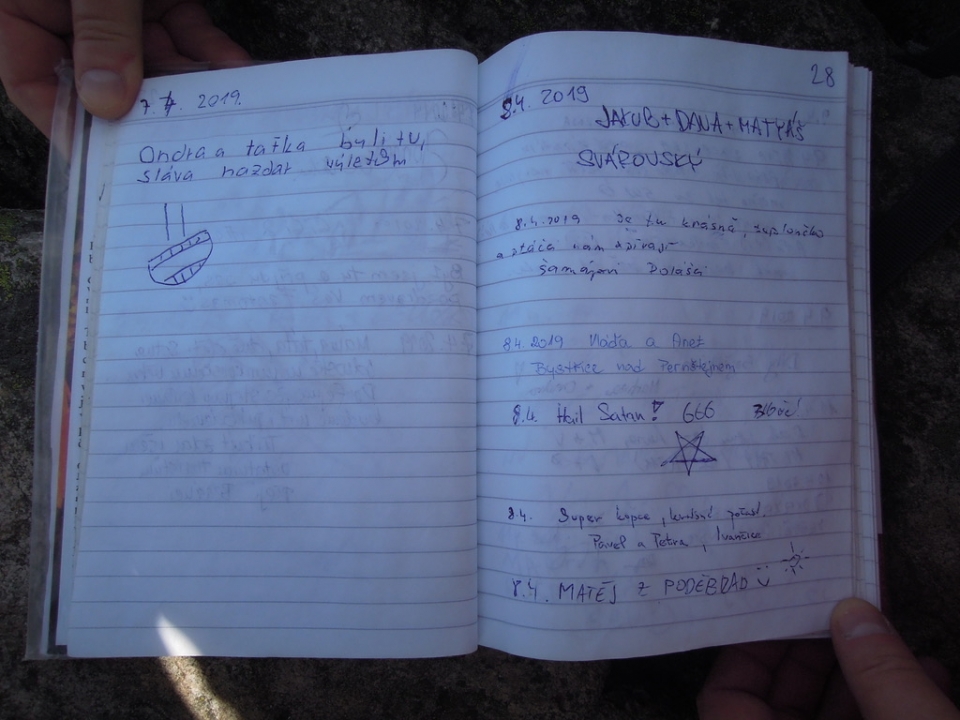 7. 4. 2019.
Ondra a taťka byli tu,
sláva nazdar výletům
28
8.4. 2019
JAKUB + DANA + MATYÁŠ
SVÁROVSKÝ
8.4.2019 Je tu krásně, teploučko
a ptáci nám zpívají
8.4.2019 Vláďa a Anet
Bystřice nad Pernštejnem
8.4. Hail Satan! 666
8.4. Super kopce, krásný počasí.
Pavel a Petra, Ivančice
8.4. MATĚJ Z PODĚBRAD